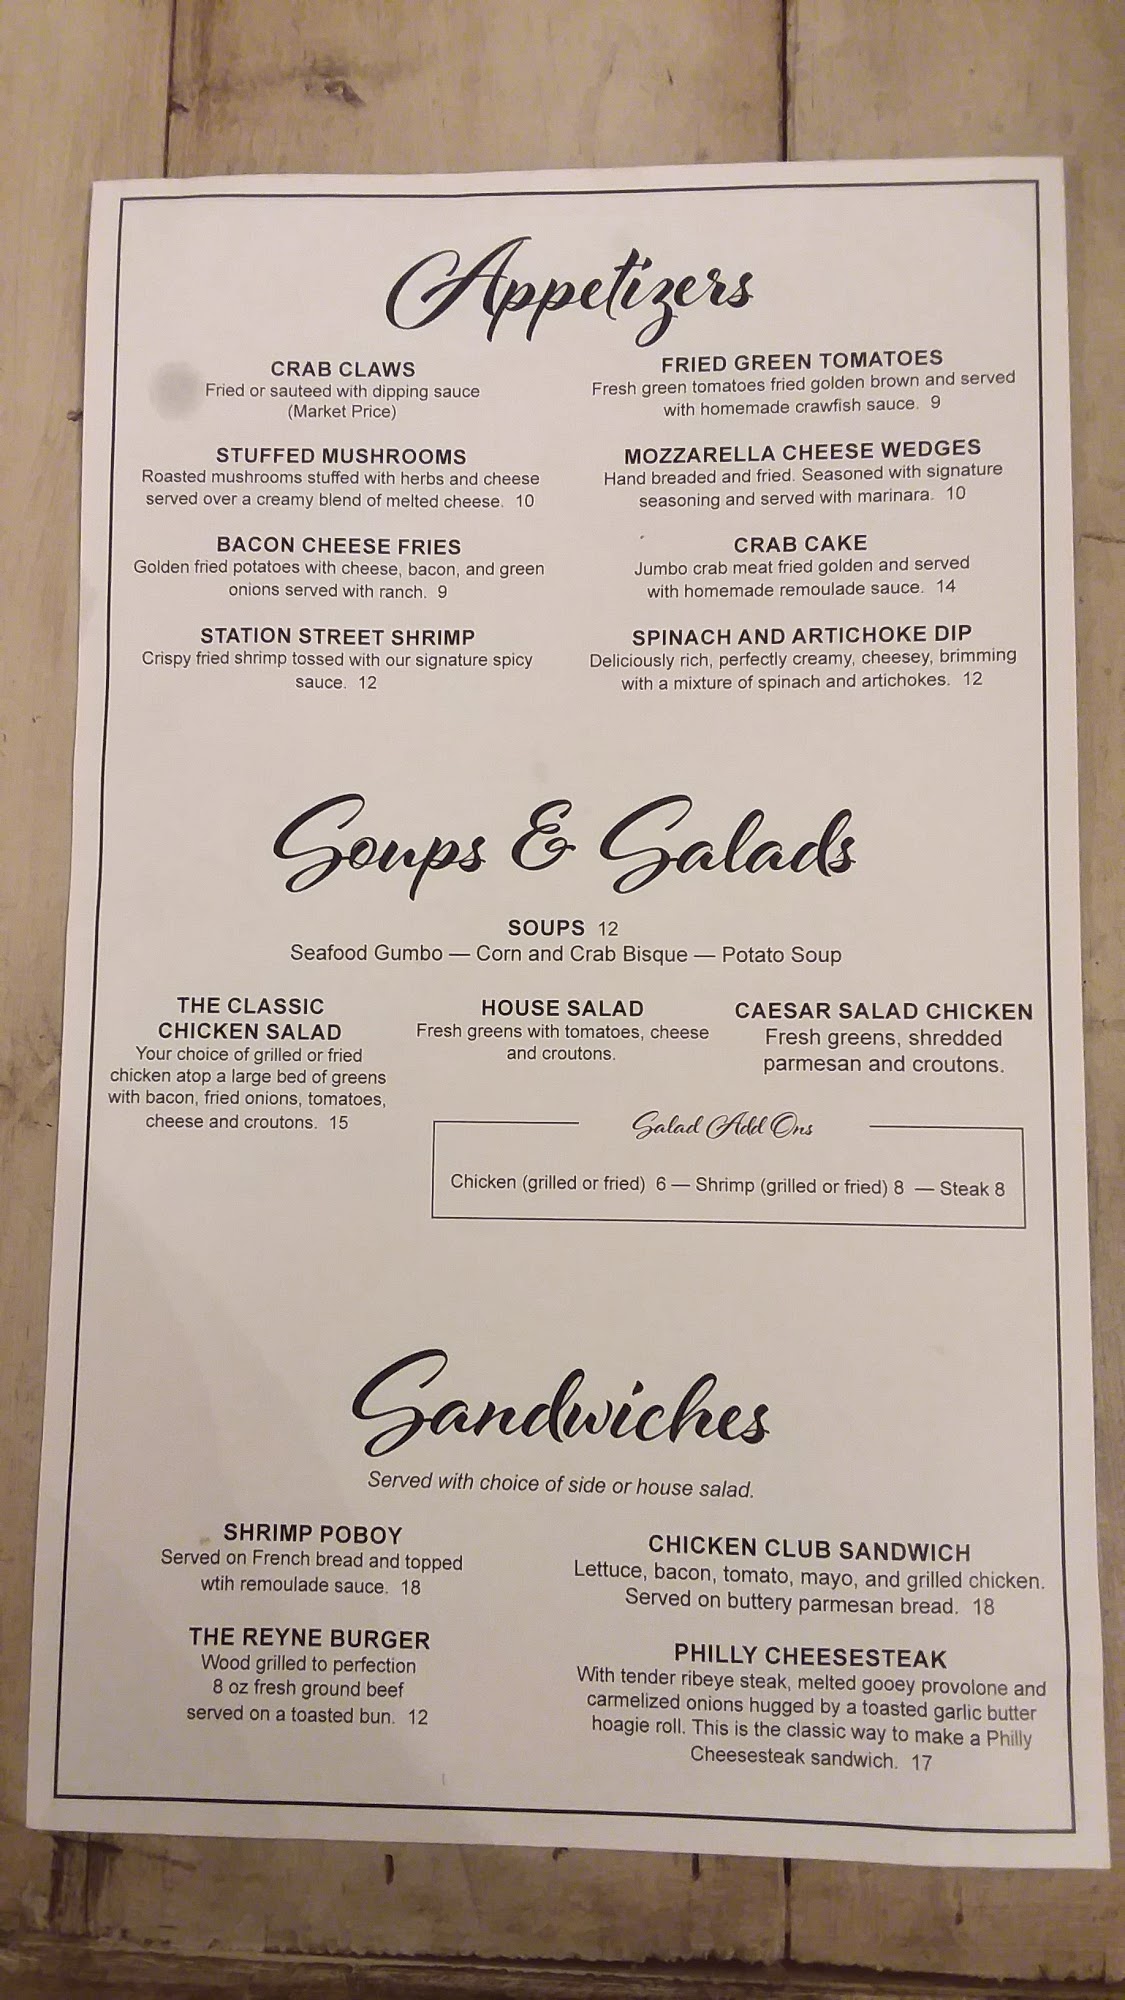 Appetizers
CRAB CLAWS
Fried or sauteed with dipping sauce
(Market Price)
FRIED GREEN TOMATOES
Fresh green tomatoes fried golden brown and served
with homemade crawfish sauce. 9
STUFFED MUSHROOMS
Roasted mushrooms stuffed with herbs and cheese
served over a creamy blend of melted cheese. 10
MOZZARELLA CHEESE WEDGES
Hand breaded and fried. Seasoned with signature
seasoning and served with marinara. 10
BACON CHEESE FRIES
Golden fried potatoes with cheese, bacon, and green
onions served with ranch. 9
CRAB CAKE
Jumbo crab meat fried golden and served
with homemade remoulade sauce. 14
STATION STREET SHRIMP
Crispy fried shrimp tossed with our signature spicy
sauce. 12
SPINACH AND ARTICHOKE DIP
Deliciously rich, perfectly creamy, cheesey, brimming
with a mixture of spinach and artichokes. 12
Soups & Salads
SOUPS 12
Seafood Gumbo — Corn and Crab Bisque — Potato Soup
THE CLASSIC
CHICKEN SALAD
Your choice of grilled or fried
chicken atop a large bed of greens
with bacon, fried onions, tomatoes,
cheese and croutons. 15
HOUSE SALAD
Fresh greens with tomatoes, cheese
and croutons.
CAESAR SALAD CHICKEN
Fresh greens, shredded
parmesan and croutons.
Salad Add Ons
Chicken (grilled or fried) 6 — Shrimp (grilled or fried) 8 — Steak 8
Sandwiches
Served with choice of side or house salad.
SHRIMP POBOY
Served on French bread and topped
wtih remoulade sauce. 18
CHICKEN CLUB SANDWICH
Lettuce, bacon, tomato, mayo, and grilled chicken.
Served on buttery parmesan bread. 18
THE REYNE BURGER
Wood grilled to perfection
8 oz fresh ground beef
served on a toasted bun. 12
PHILLY CHEESESTEAK
With tender ribeye steak, melted gooey provolone and
carmelized onions hugged by a toasted garlic butter
hoagie roll. This is the classic way to make a Philly
Cheesesteak sandwich. 17